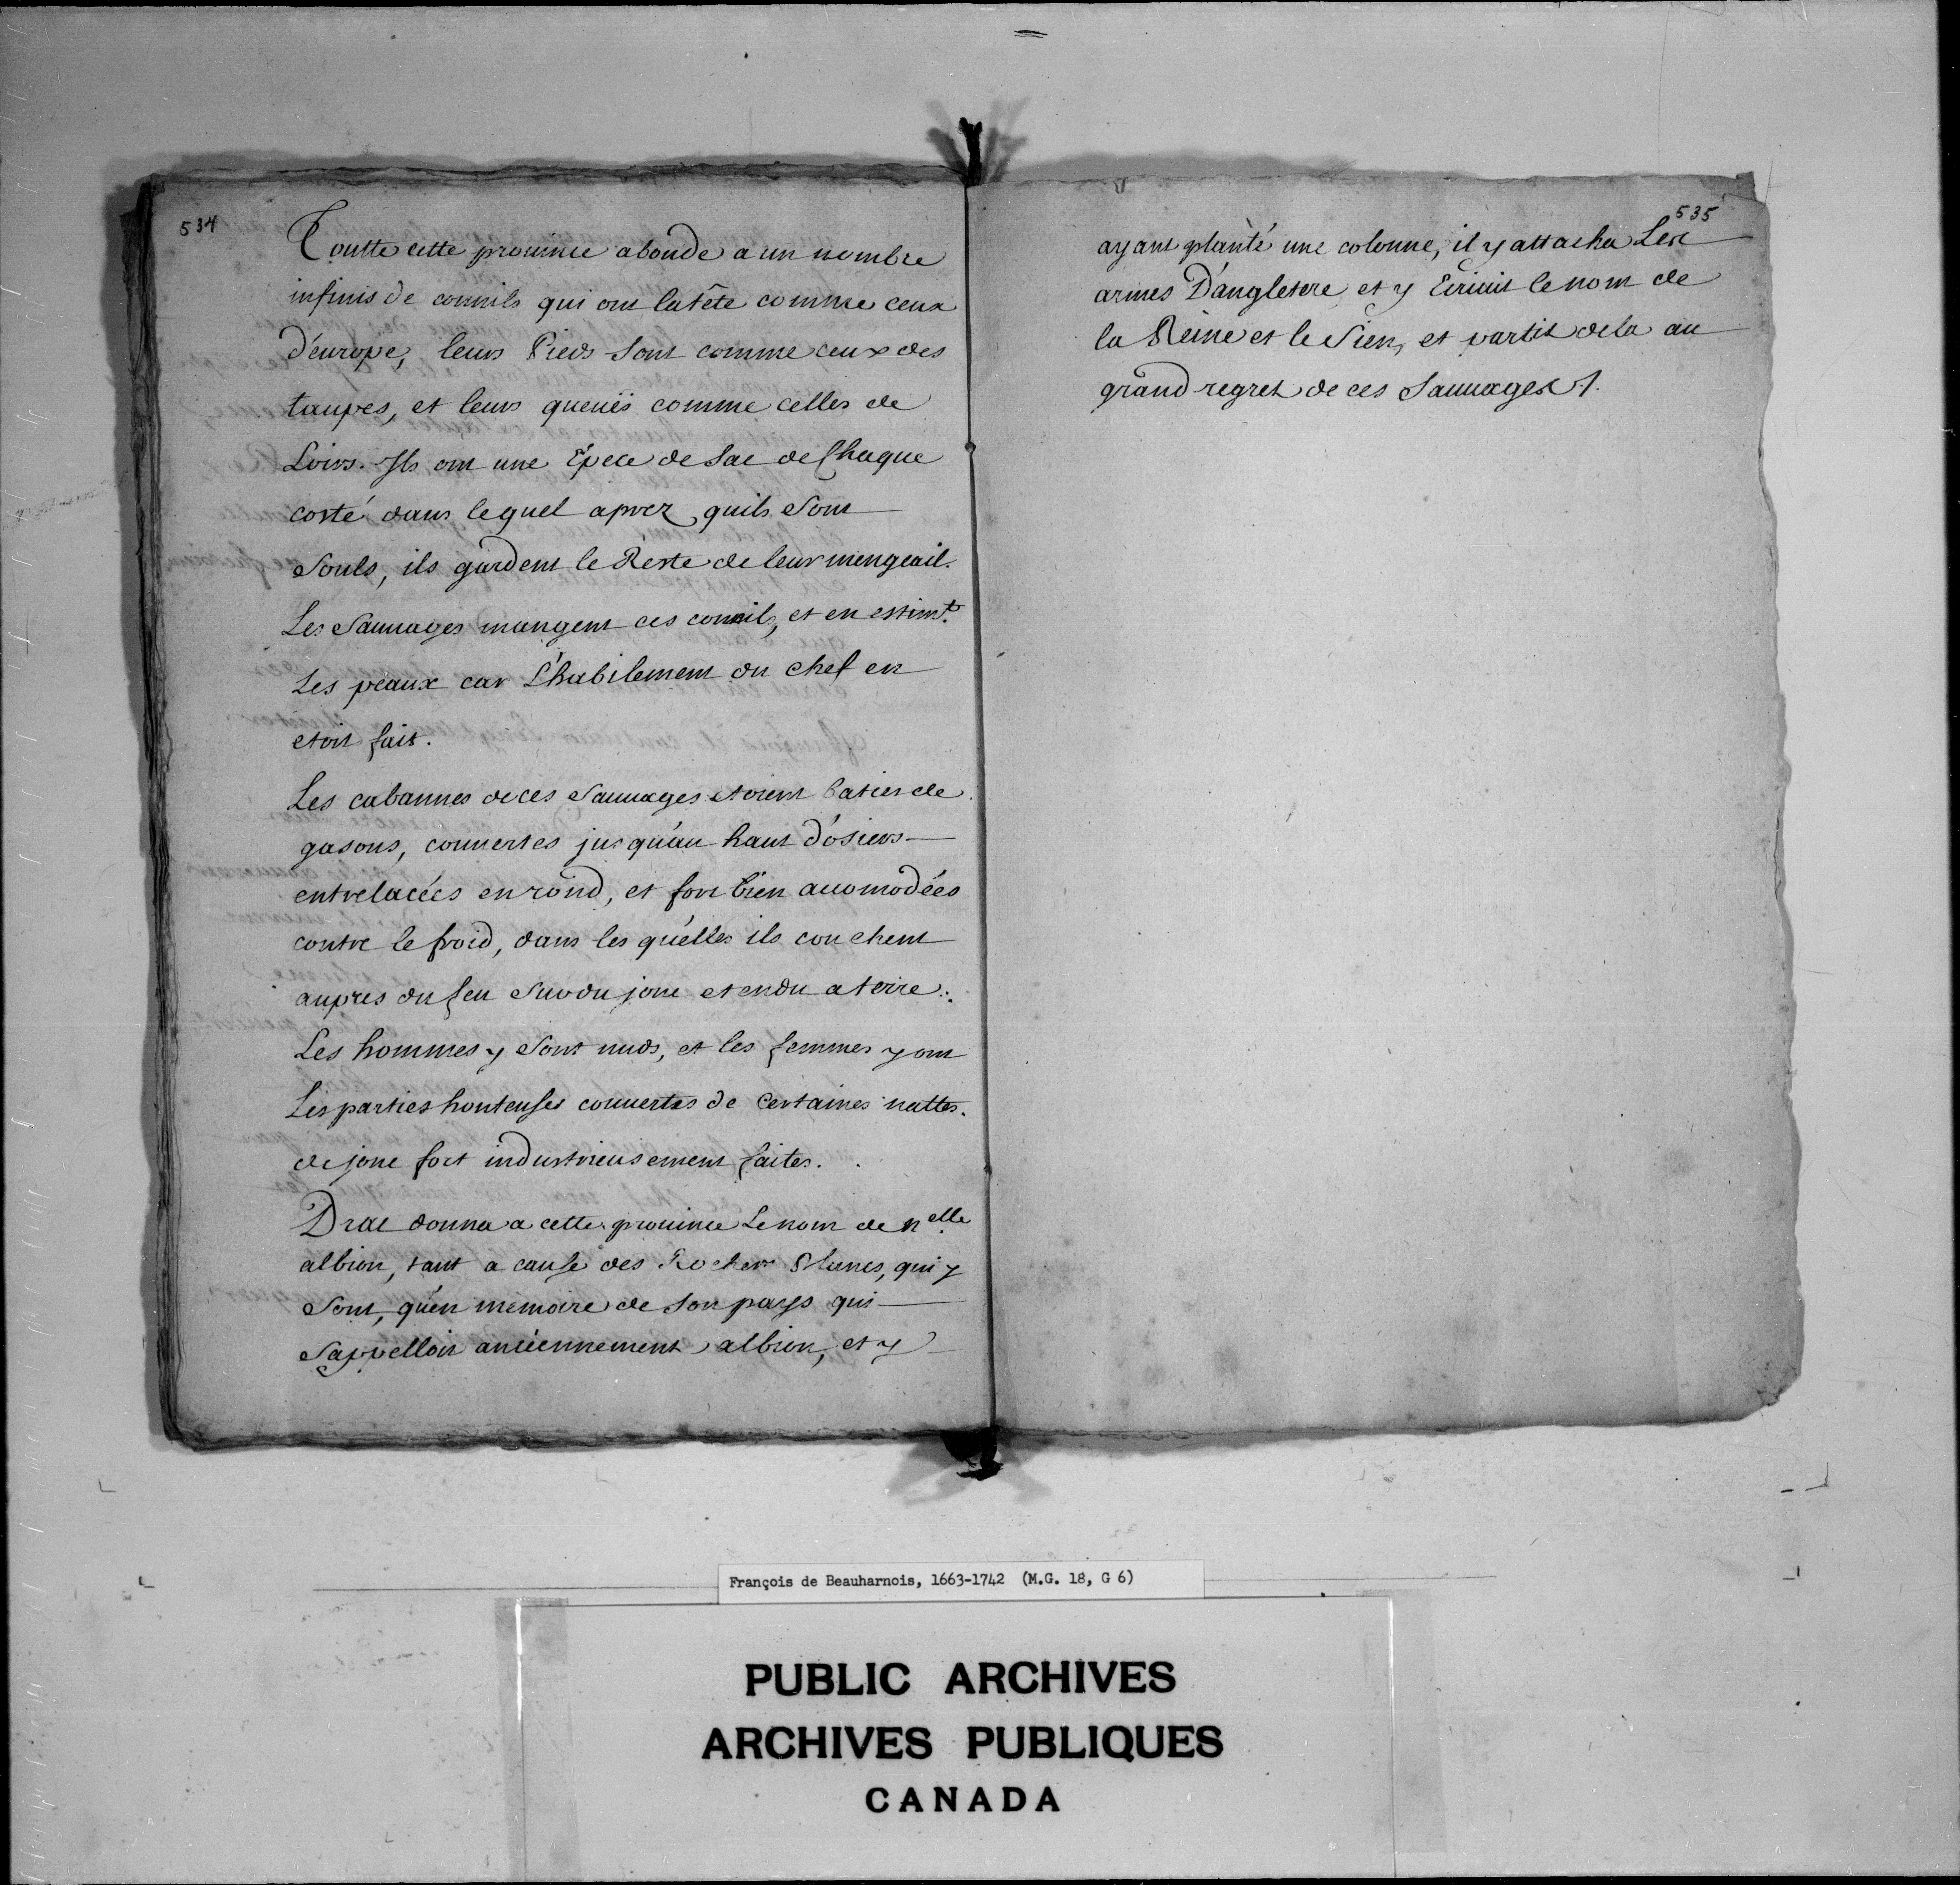 534
Toutte cette prouince abonde a un nombre
infinis de connils qui ont la tête comme ceux
d'europe, leurs Pieds sont comme ceux des
taupes, et leurs queuës comme celles de
Loirs. Ils ont une Epece de sac de Chaque
costé dans lequel aprez quils sont
souls, ils gardent le Reste de leur mengeail.
Les sauuages mangent ces connils, et en estimt.
Les peaux car L'habilement du chef en
etoit fait.
Les cabannes de ces sauuages etoient baties de
gasons, couuertes jusqu'au haut d'osiers
entrelacées en rond, et fort bien accomodées
contre le froid, dans les qu'elles ils couchent
aupres du feu sur du jonc etendu a terre.
Les hommes y sont nuds, et les femmes y ont
Les parties honteuses couuertes de certaines nattes.
de jonc fort industrieusement faites.
Drac donna a cette prouince Le nom de nelle.
albion, tant a cause des Rochers blancs, qui y
sont, qu'en mémoire de son pays qui
s'appelloit anciennement albion, et y
535
ayant planté une colonne, il y attacha Les
armes D'angletere et y Ecriuit le nom de
la Reine et le sien, et partit de la au
grand regret de ces sauuages
François de Beauharnois, 1663-1742 (M.G. 18, G 6)
PUBLIC ARCHIVES
ARCHIVES PUBLIQUES
CANADA